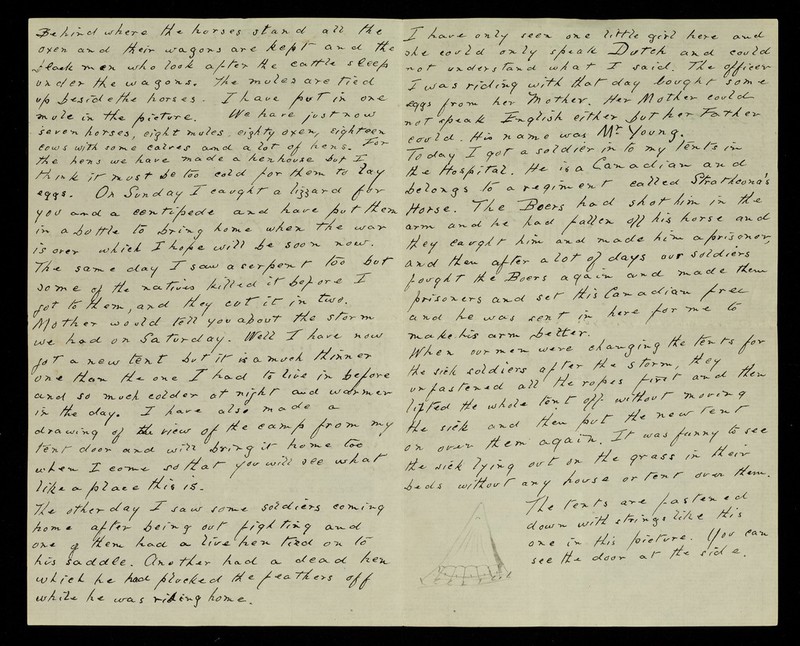 Behind where the horses stand all the
oxen and their wagons are kept and the
black men who look after the cattle sleep
under the wagons. The mules are tied
up beside the horses. I have put in one
mule in the picture. We have just now
seven horses, eight mules, eighty oxen, eighteen
cows with some calves and a lot of hens. For
the hens we have made a henhouse but I
think it must be too cold for them to lay
eggs. On Sunday I caught a lizzard for
you and a centipede and have put them
in a bottle to bring home when the war
is over which I hope will be soon now.
The same day I saw a serpent too but
some of the natives killed it before I
got to them, and they cut it in two.
Mother would tell you about the storm
we had on Saturday. Well I have now
got a new tent but it is a much thinner
one than the one I had to live in before
and so much colder at night and warmer
in the day. I have also made a
drawing of the view of the camp from my
tent door and will bring it home too
when I come so that you will see what
like a place this is.
The other day I saw some soldiers coming
home after being out fighting and
one of them had a live hen tied on to
his saddle. Another had a dead hen
which he had plucked the feathers off
while he was riding home.
I have only seen one little girl here and
she could only speak Dutch and could
not understand what I said. The officer
I was riding with that day bought some
eggs from her Mother. Her Mother could
not speak English either but her Father
could. His name was Mr Young.
Today I got a soldier in to my tents in
the Hospital. He is a Canadian and
belongs to a regiment called Strathcona's
Horse. The Boers had shot him in the
arm and he had fallen off his horse and
they caught him and made him a prisoner,
and then after a lot of days our soldiers
fought the Boers again and made them
prisoners and set this Canadian free
and he was sent in here for me to
make his arm better.
When our men were changing the tents for
the sick soldiers after the storm, they
unfastened all the ropes first and then
lifted the whole tent off without moving
the sick and then put the new tent
on over them again. It was funny to see
the sick lying out on the grass in their
beds without any house or tent over them.
The tents are fastened
down with strings like this
one in this picture. You can
see the door at the side.